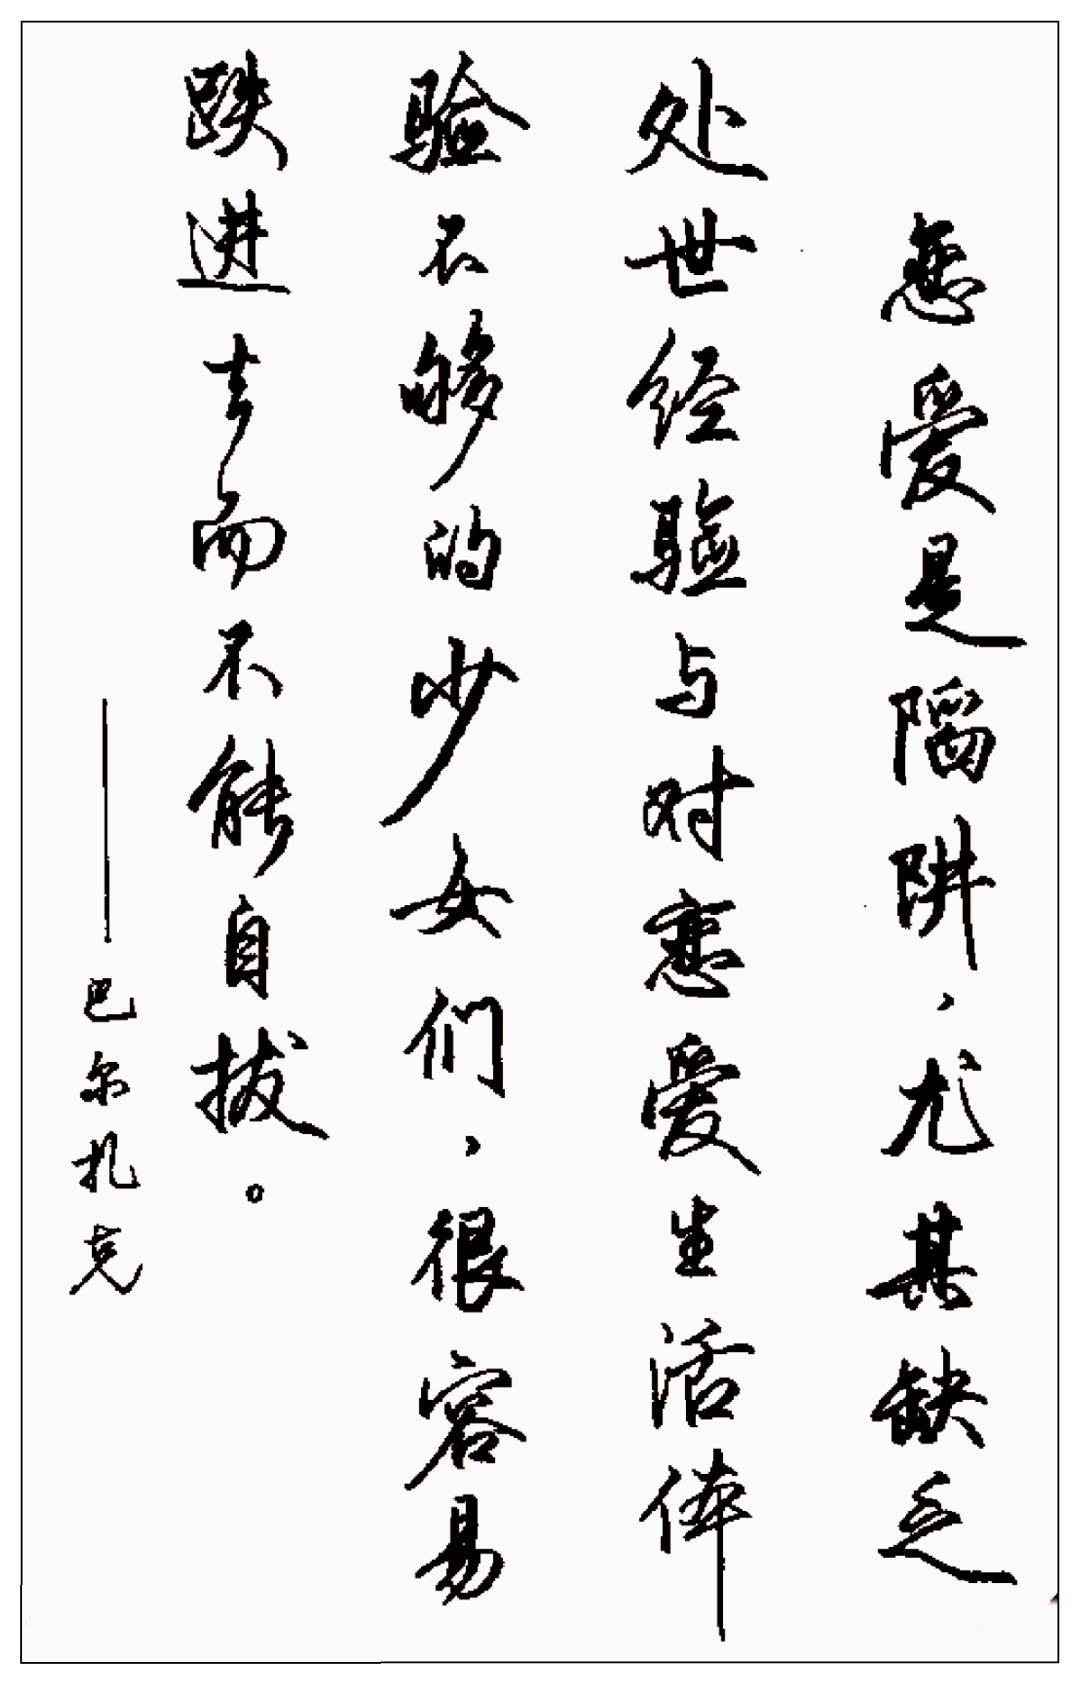 恋爱是陷阱，尤其缺乏
处世经验与对恋爱生活体
验不够的少女们，很容易
跌进去而不能自拔。
——巴尔扎克